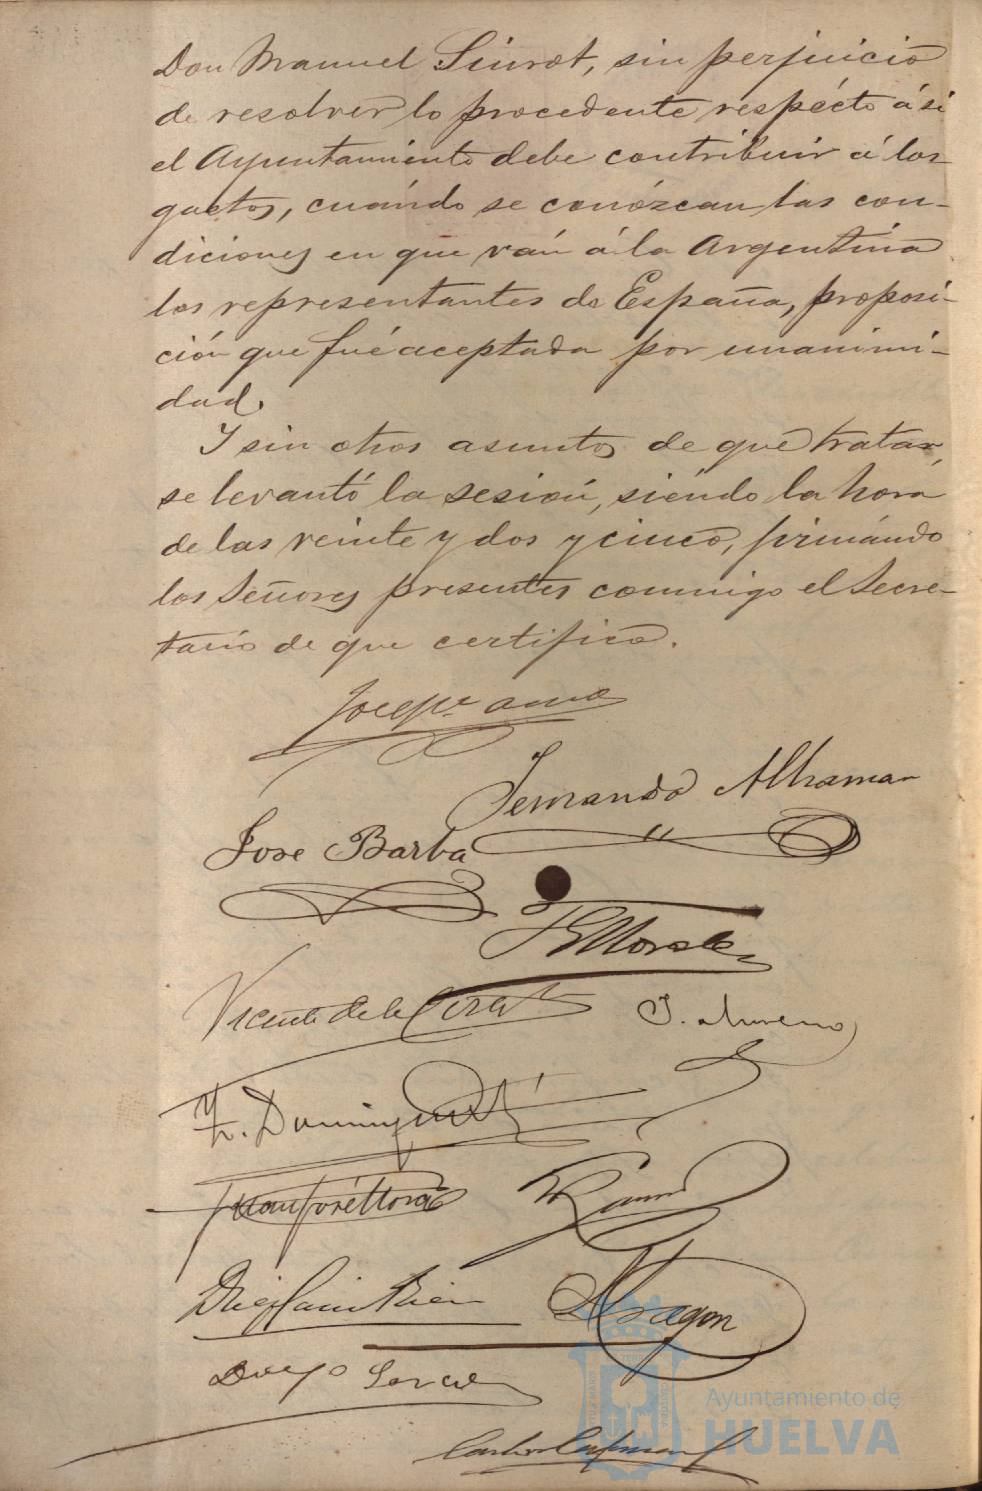 Don Manuel Siurot, sin perjuicio
de resolver lo procedente respécto á si
el Ayuntamiento debe contribuir á los
gastos, cuándo se conózcan las con-
diciones en que ván á la Argentina
los representantes de España, proposi-
ción que fué aceptada por unanimi-
dad.
Y sin otros asuntos de que tratar,
se levantó la sesión, siéndo la hora
de las veinte y dos y cinco, firmándo
los Señores presentes conmigo el Secre-
tario de que certifico.
Fernando Alhaman
José Barba
Morales
Vicente de la
J. Moreno
Domínguez
Juan José Mora
Aragon
Diego Garcia
Diego
Carlos
Ayuntamiento de
HUELVA